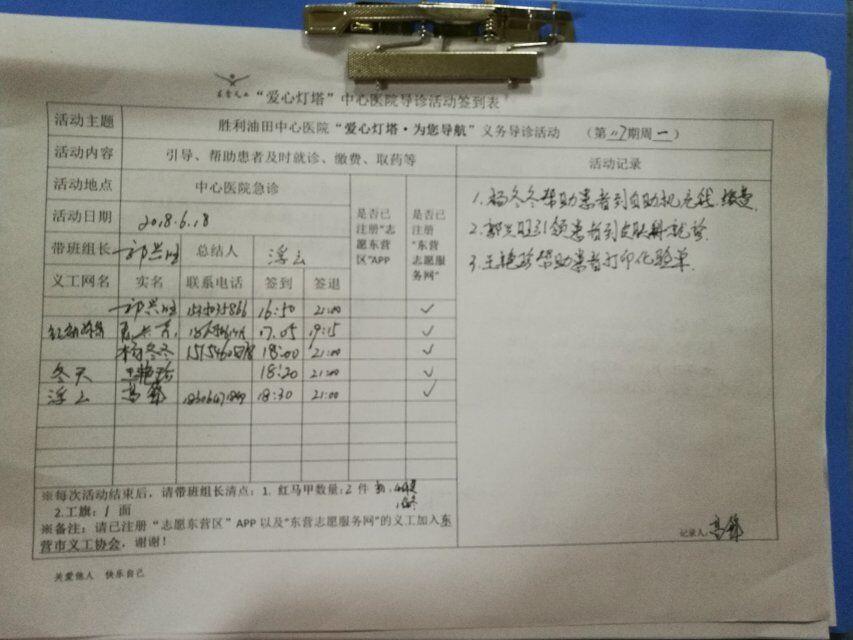 东营义工 "爱心灯塔"中心医院导诊活动签到表
活动主题 胜利油田中心医院"爱心灯塔·为您导航"义务导诊活动 (第 期周一)
活动内容 引导、帮助患者及时就诊、缴费、取药等 活动记录
活动地点 中心医院急诊 是否已注册"志愿东营区"APP 是否已注册"东营志愿服务网"
活动日期 2018.6.18
带班组长 总结人 浮云
义工网名 实名 联系电话 签到 签退
16:50 21:00 ✓
17:05 19:15 ✓
杨冬冬 18:00 21:00 ✓
冬天 王艳珍 18:20 21:00 ✓
浮云 18:30 21:00 ✓
1.杨冬冬帮助患者到自助机充钱.
2. 引领患者到皮肤科就诊.
3.王艳珍帮助患者打印化验单.
※每次活动结束后,请带班组长清点:1.红马甲数量:2件
2.工旗:1面
※备注:请已注册"志愿东营区"APP以及"东营志愿服务网"的义工加入东
营市义工协会,谢谢!
记录人:
关爱他人 快乐自己